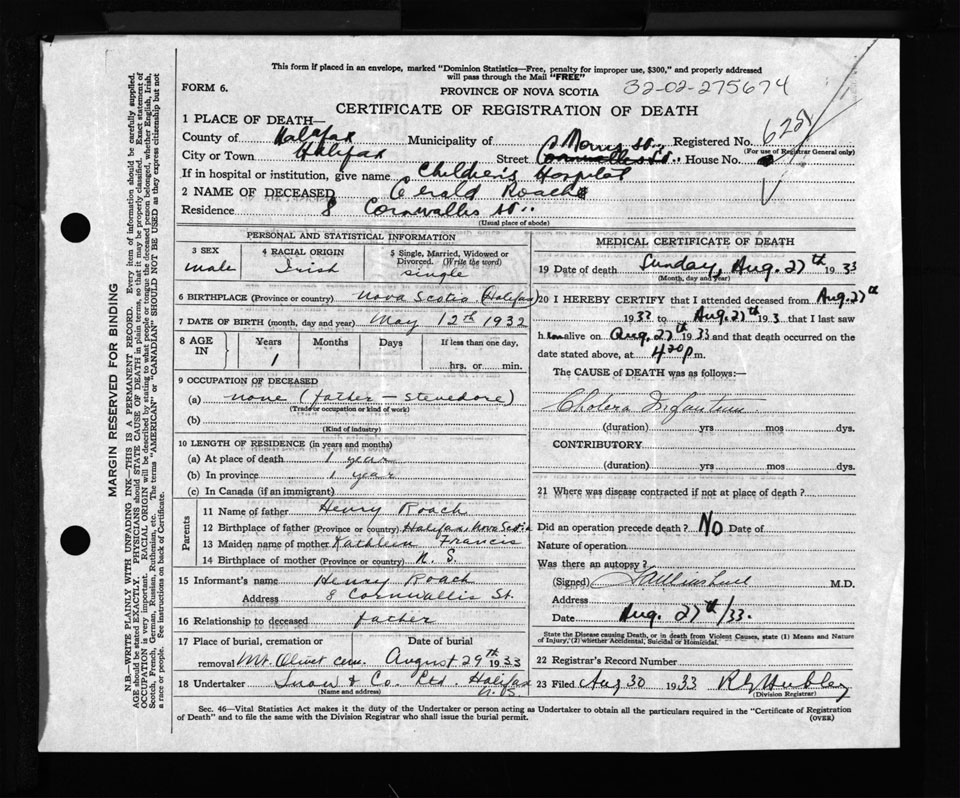 This form if placed in an envelope, marked "Dominion Statistics—Free, penalty for improper use, $300," and properly addressed
will pass through the Mail "FREE"
FORM 6.
PROVINCE OF NOVA SCOTIA
32-02-275674
CERTIFICATE OF REGISTRATION OF DEATH
1 PLACE OF DEATH—
County of Halifax Municipality of Registered No. 622
(For use of Registrar General only)
City or Town Halifax Street Morris St. Cornwallis St. House No.
If in hospital or institution, give name Children's Hospital
2 NAME OF DECEASED Gerald Roach
Residence 8 Cornwallis St.
(Usual place of abode)
PERSONAL AND STATISTICAL INFORMATION
3 SEX
male
4 RACIAL ORIGIN
Irish
5 Single, Married, Widowed or
Divorced. (Write the word)
single
6 BIRTHPLACE (Province or country) Nova Scotia (Halifax)
7 DATE OF BIRTH (month, day and year) May 12th 1932
8 AGE
IN
Years Months Days If less than one day,
1 hrs. or min.
9 OCCUPATION OF DECEASED
(a) none (father – stevedore)
(Trade or occupation or kind of work)
(b)
(Kind of industry)
10 LENGTH OF RESIDENCE (in years and months)
(a) At place of death 1 year
(b) In province 1 year
(c) In Canada (if an immigrant)
Parents
11 Name of father Henry Roach
12 Birthplace of father (Province or country) Halifax, Nova Scotia
13 Maiden name of mother Kathleen Francis
14 Birthplace of mother (Province or country) N. S.
15 Informant's name Henry Roach
Address 8 Cornwallis St.
16 Relationship to deceased father
17 Place of burial, cremation or Date of burial
removal Mt. Olivet cem. August 29th 1933
18 Undertaker Snow & Co. Ltd. Halifax
N.S.
(Name and address)
MEDICAL CERTIFICATE OF DEATH
19 Date of death Sunday, Aug. 27th 1933
(Month, day and year)
20 I HEREBY CERTIFY that I attended deceased from Aug. 27th
1932 to Aug. 27th 193 that I last saw
him alive on Aug. 27th 1933 and that death occurred on the
date stated above, at 4.20 p.m.
The CAUSE of DEATH was as follows:
Cholera Infantum
(duration) yrs mos dys.
CONTRIBUTORY
(duration) yrs mos dys.
21 Where was disease contracted if not at place of death?
Did an operation precede death? No Date of
Nature of operation
Was there an autopsy?
(Signed) M.D.
Address
Date Aug. 27th/33.
State the Disease causing Death, or in death from Violent Causes, state (1) Means and Nature
of Injury, (2) whether Accidental, Suicidal or Homicidal.
22 Registrar's Record Number
23 Filed Aug 30 1933
(Division Registrar)
Sec. 46—Vital Statistics Act makes it the duty of the Undertaker or person acting as Undertaker to obtain all the particulars required in the "Certificate of Registration
of Death" and to file the same with the Division Registrar who shall issue the burial permit.
(OVER)
MARGIN RESERVED FOR BINDING
N.B.—WRITE PLAINLY WITH UNFADING INK—THIS IS A PERMANENT RECORD. Every item of information should be carefully supplied.
AGE should be stated EXACTLY. PHYSICIANS should STATE CAUSE OF DEATH in plain terms, so that it may be properly classified. Exact statement of
OCCUPATION is very important. RACIAL ORIGIN will be described by stating to what people or tongue the deceased person belonged, whether English, Irish,
Scotch, French, German, Russian, Ruthenian, etc. The terms "AMERICAN" or "CANADIAN" SHOULD NOT BE USED as they express citizenship but not
a race or people. See instructions on back of Certificate.